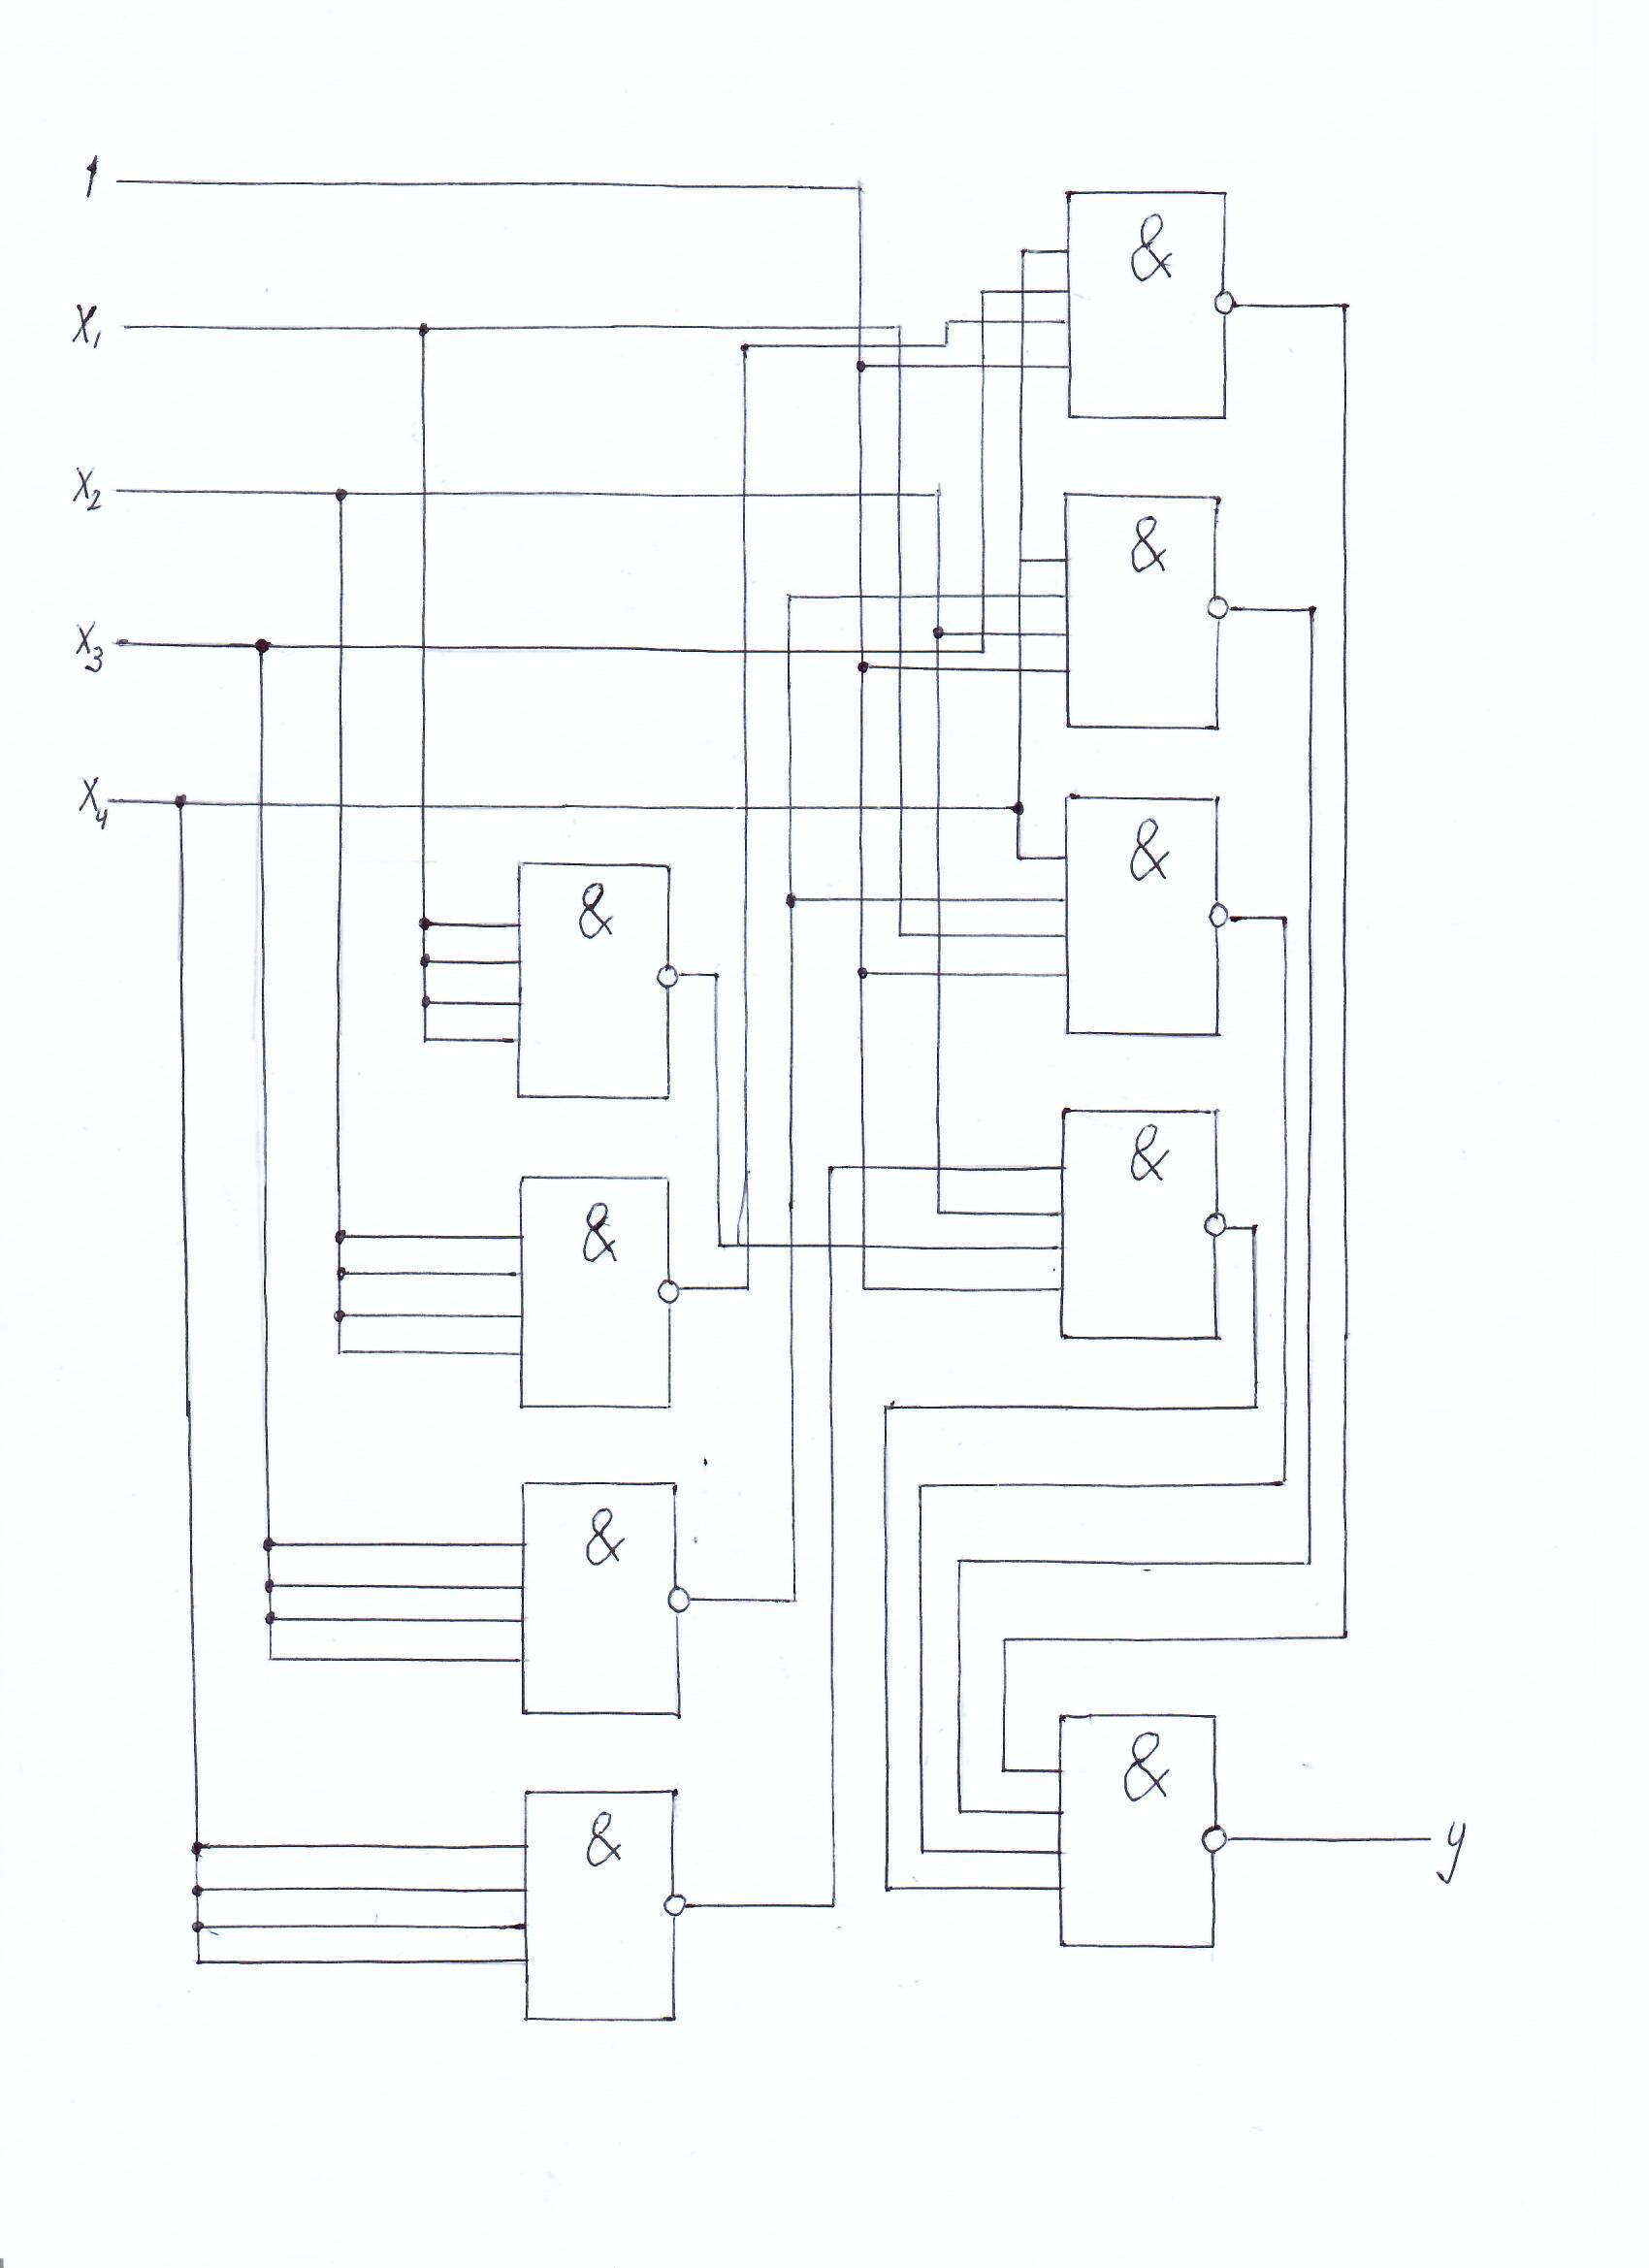 1
&
X₁
X₂
&
X₃
X₄
&
&
&
&
&
&
&
y